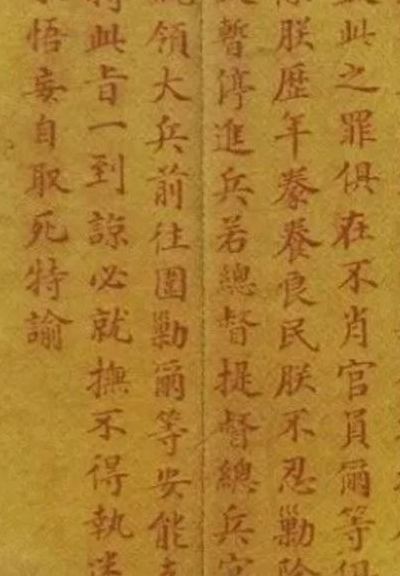 此之罪俱在不肖官員爾等俱
朕歷年豢養良民朕不忍勦除
暫停進兵若總督提督總兵官
統領大兵前往圍勦爾等安能
特此旨一到諒必就撫不得執迷
悟妄自取死特諭